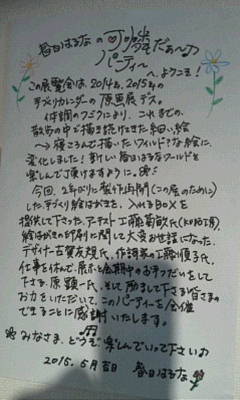 春日はるなの♡可憐だぁ〜の
パーティー
へ、ようこそ!
この展覧会は、2014&、2015年の
手づくりカレンダーの原画展デス。
体調の
により、これまでの、
散歩の中で描き続けてきた細い絵
→寝ころんで描いたワイルド?な絵に、
変化しました!新しい春日はるなワールドを
楽しんで頂けますように。
今回、2年ぶりに製作再開(この展のために)
した手づくり絵はがきを、入れるBOXを
提供して下さった、アーチスト工藤
氏(
工房)、
絵はがきの印刷に関して大変お世話になった、
デザイナー古賀友規氏、作詞家の工藤
子氏、
仕事を休んで、展示と会期中のお手つだいをして
下さる、原
一氏、そして励まして下さる皆さまの
お力をいただいて、このパーティーを企催
できることに感謝いたします。
みなさま、どうぞ楽しんでいって下さい♪
2015.5月吉日 春日はるな